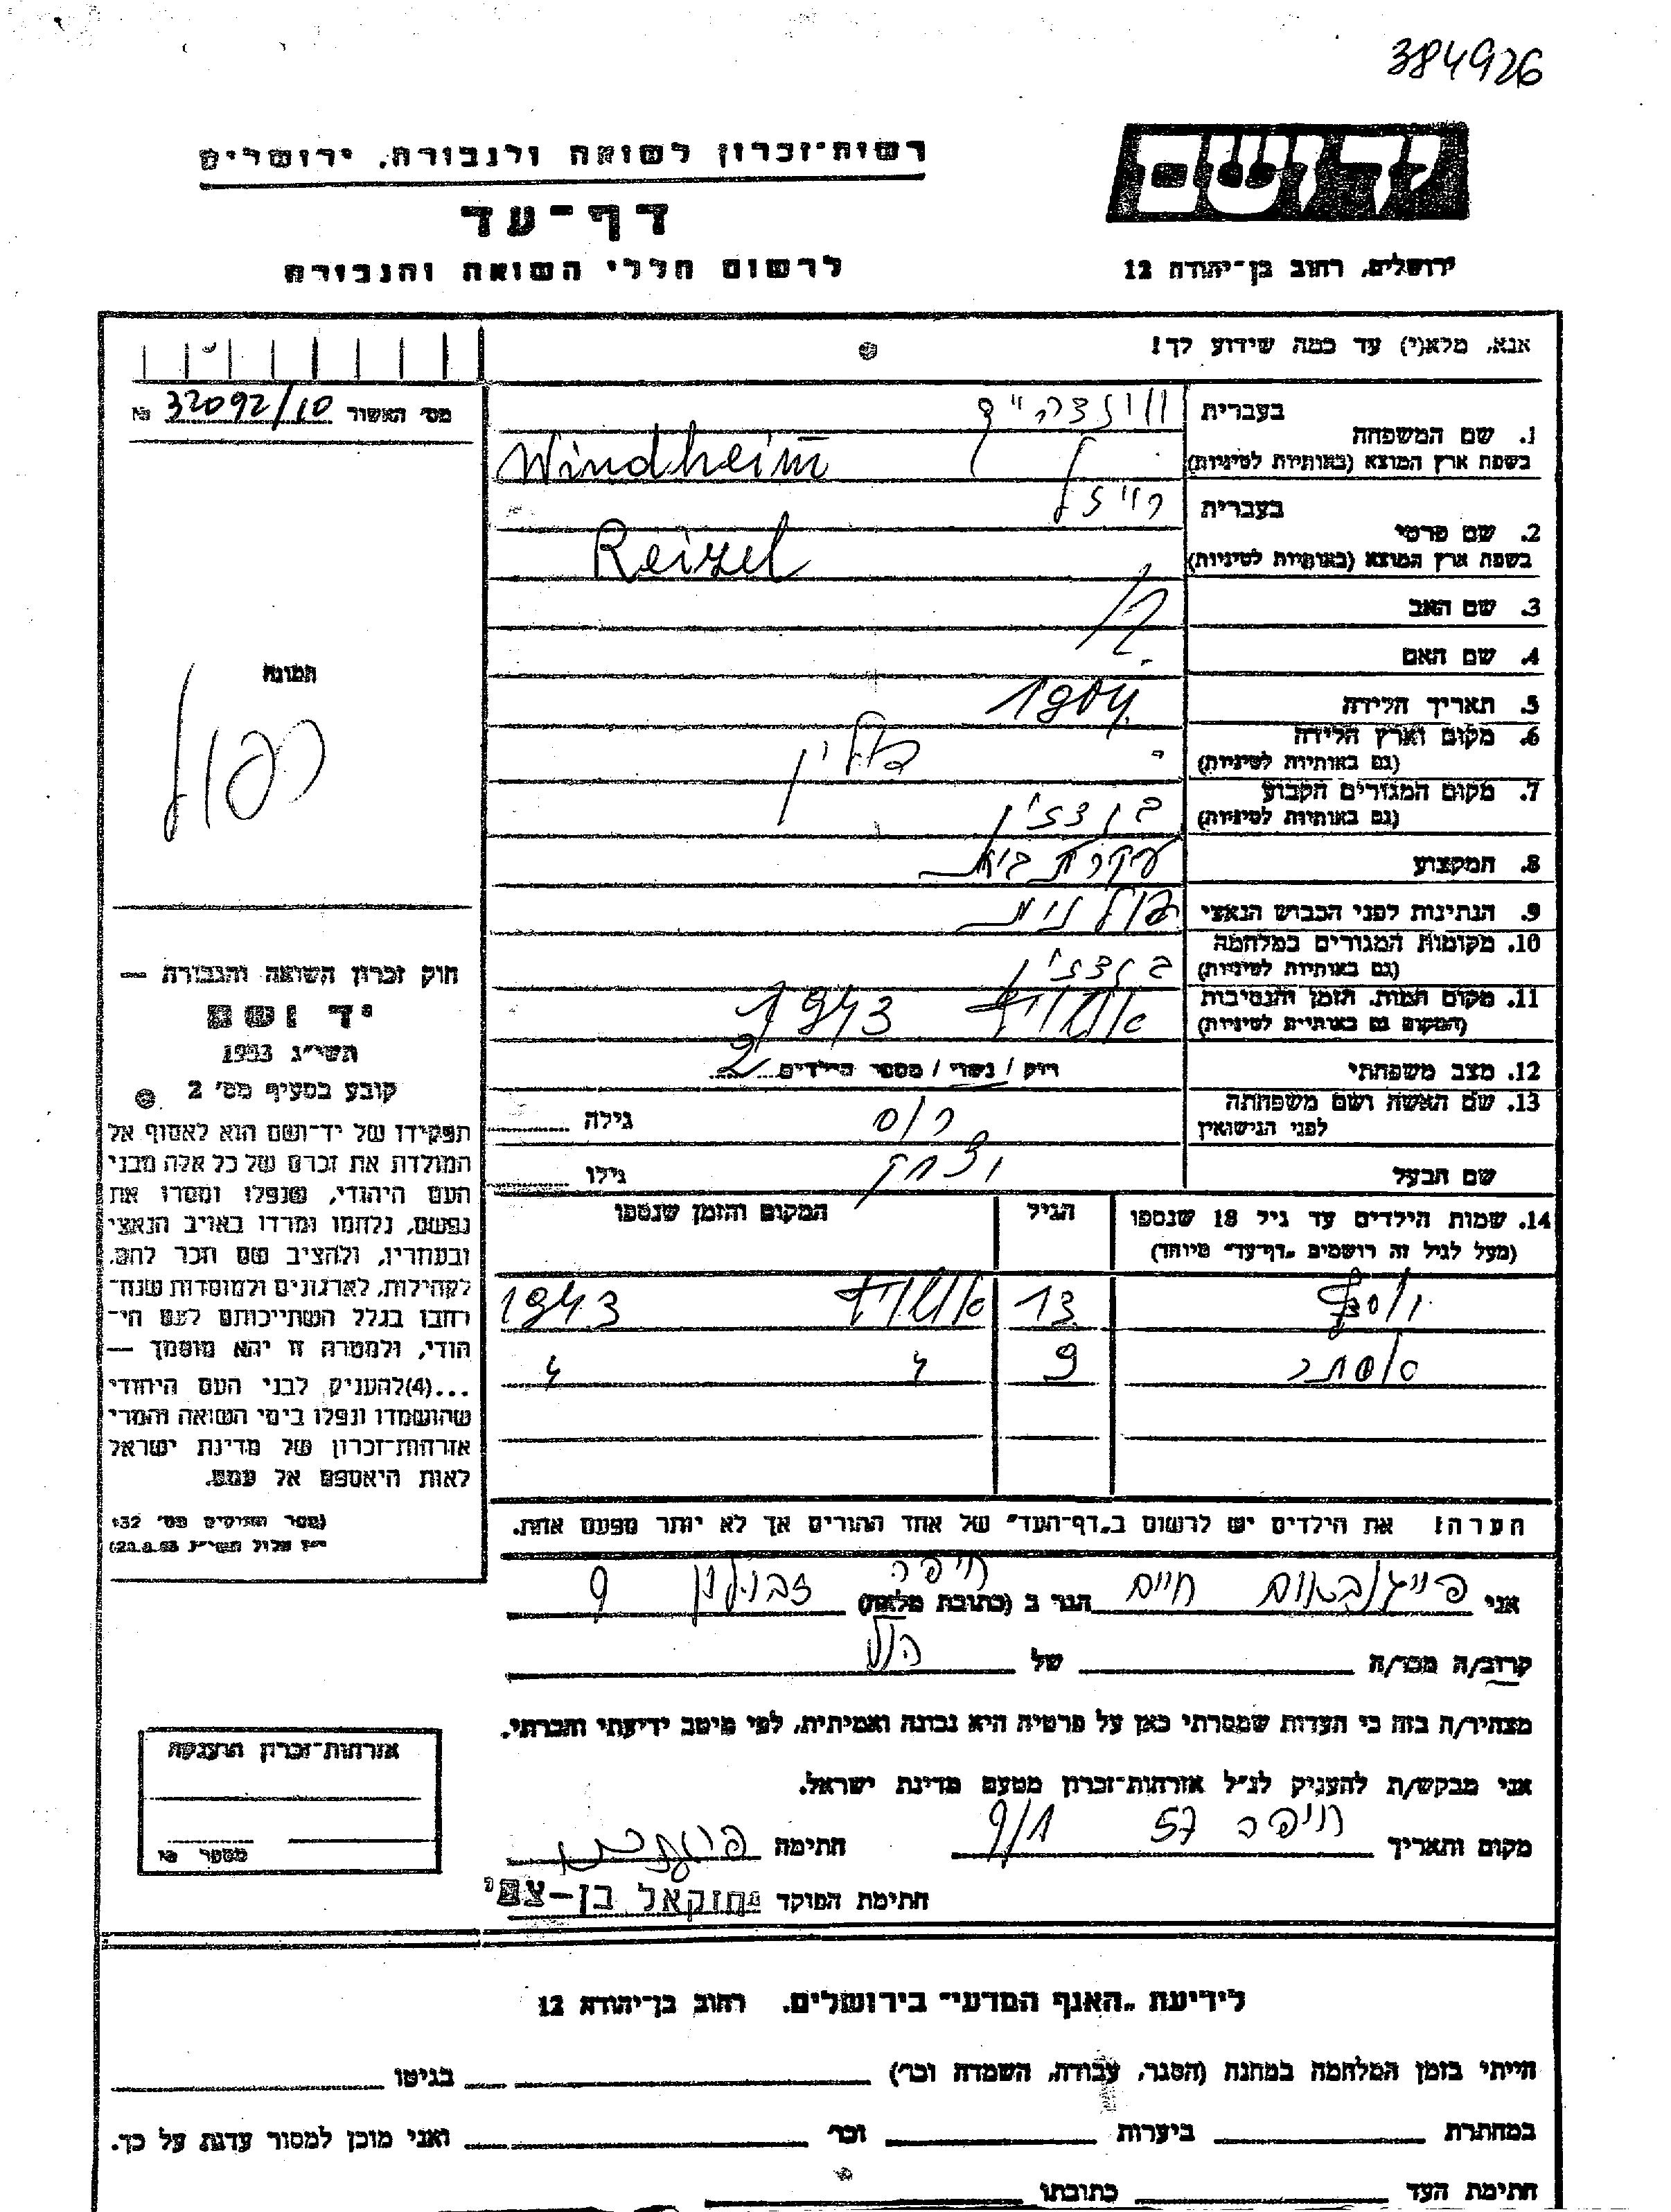 384926
יד ושם
רשות-זכרון לשואה ולגבורה, ירושלים
דף-עד
לרשום חללי השואה והגבורה
ירושלים, רחוב בן-יהודה 12
אנא, מלא(י) עד כמה שידוע לך!
מס' האשור 32092/10 №
1. שם המשפחה
בעברית ווינדהיים
בשפת ארץ המוצא (באותיות לטיניות) Windheim
2. שם פרטי
בעברית רייזל
בשפת ארץ המוצא (באותיות לטיניות) Reizel
3. שם האב
4. שם האם
5. תאריך הלידה 1904
6. מקום וארץ הלידה
(גם באותיות לטיניות) פולין
7. מקום המגורים הקבוע בנדzין
(גם באותיות לטיניות)
8. המקצוע עקרת בית
9. הנתינות לפני הכבוש הנאצי פולנית
10. מקומות המגורים במלחמה
(גם באותיות לטיניות)
11. מקום המות, הזמן והנסיבות אושויץ 1943
(המקום גם באותיות לטיניות)
12. מצב משפחתי רווק / נשוי / מספר הילדים 2
13. שם האשה ושם משפחתה גילה
לפני הנישואין רוס
שם הבעל יצחק גילו
14. שמות הילדים עד גיל 18 שנספו הגיל המקום והזמן שנספו
(מעל לגיל זה רושמים "דף-עד" מיוחד)
יוסף 13 אושויץ 1943
אסתר 9 " "
הערה! את הילדים יש לרשום ב"דף-העד" של אחד ההורים אך לא יותר מפעם אחת.
תמונה
כפול
חוק זכרון השואה והגבורה —
יד ושם
תשי"ג 1953
קובע בסעיף מס' 2
תפקידו של יד-ושם הוא לאסוף אל
המולדת את זכרם של כל אלה מבני
העם היהודי, שנפלו ומסרו את
נפשם, נלחמו ומרדו באויב הנאצי
ובעוזריו, ולהציב שם וזכר להם,
לקהילות, לארגונים ולמוסדות שנח-
רבו בגלל השתייכותם לעם הי-
הודי, ולמטרה זו יהא מוסמך —
...(4)להעניק לבני העם היהודי
שהושמדו ונפלו בימי השואה והמרי
אזרחות-זכרון של מדינת ישראל
לאות היאספם אל עמם.
(ספר החוקים מס' 132
י"ז אלול תשי"ג 28.8.53)
אני פייגנבאום חיים הגר ב (כתובת מלאה) חיפה זבולון 9
קרוב/ה מכר/ה של
מצהיר/ה בזה כי העדות שמסרתי כאן על פרטיה היא נכונה ואמיתית, לפי מיטב ידיעתי והכרתי.
אני מבקש/ת להעניק לנ"ל אזרחות-זכרון מטעם מדינת ישראל.
מקום ותאריך חיפה 57 9/1 חתימה
חתימת הפוקד יחזקאל בן-צבי
אזרחות-זכרון הוענקה
מספר
לידיעת "האגף המדעי" בירושלים, רחוב בן-יהודה 12
הייתי בזמן המלחמה במחנה (הסגר, עבודה, השמדה וכו') בגיטו
במחתרת ביערות וכו' ואני מוכן למסור עדות על כך.
חתימת העד כתובתו